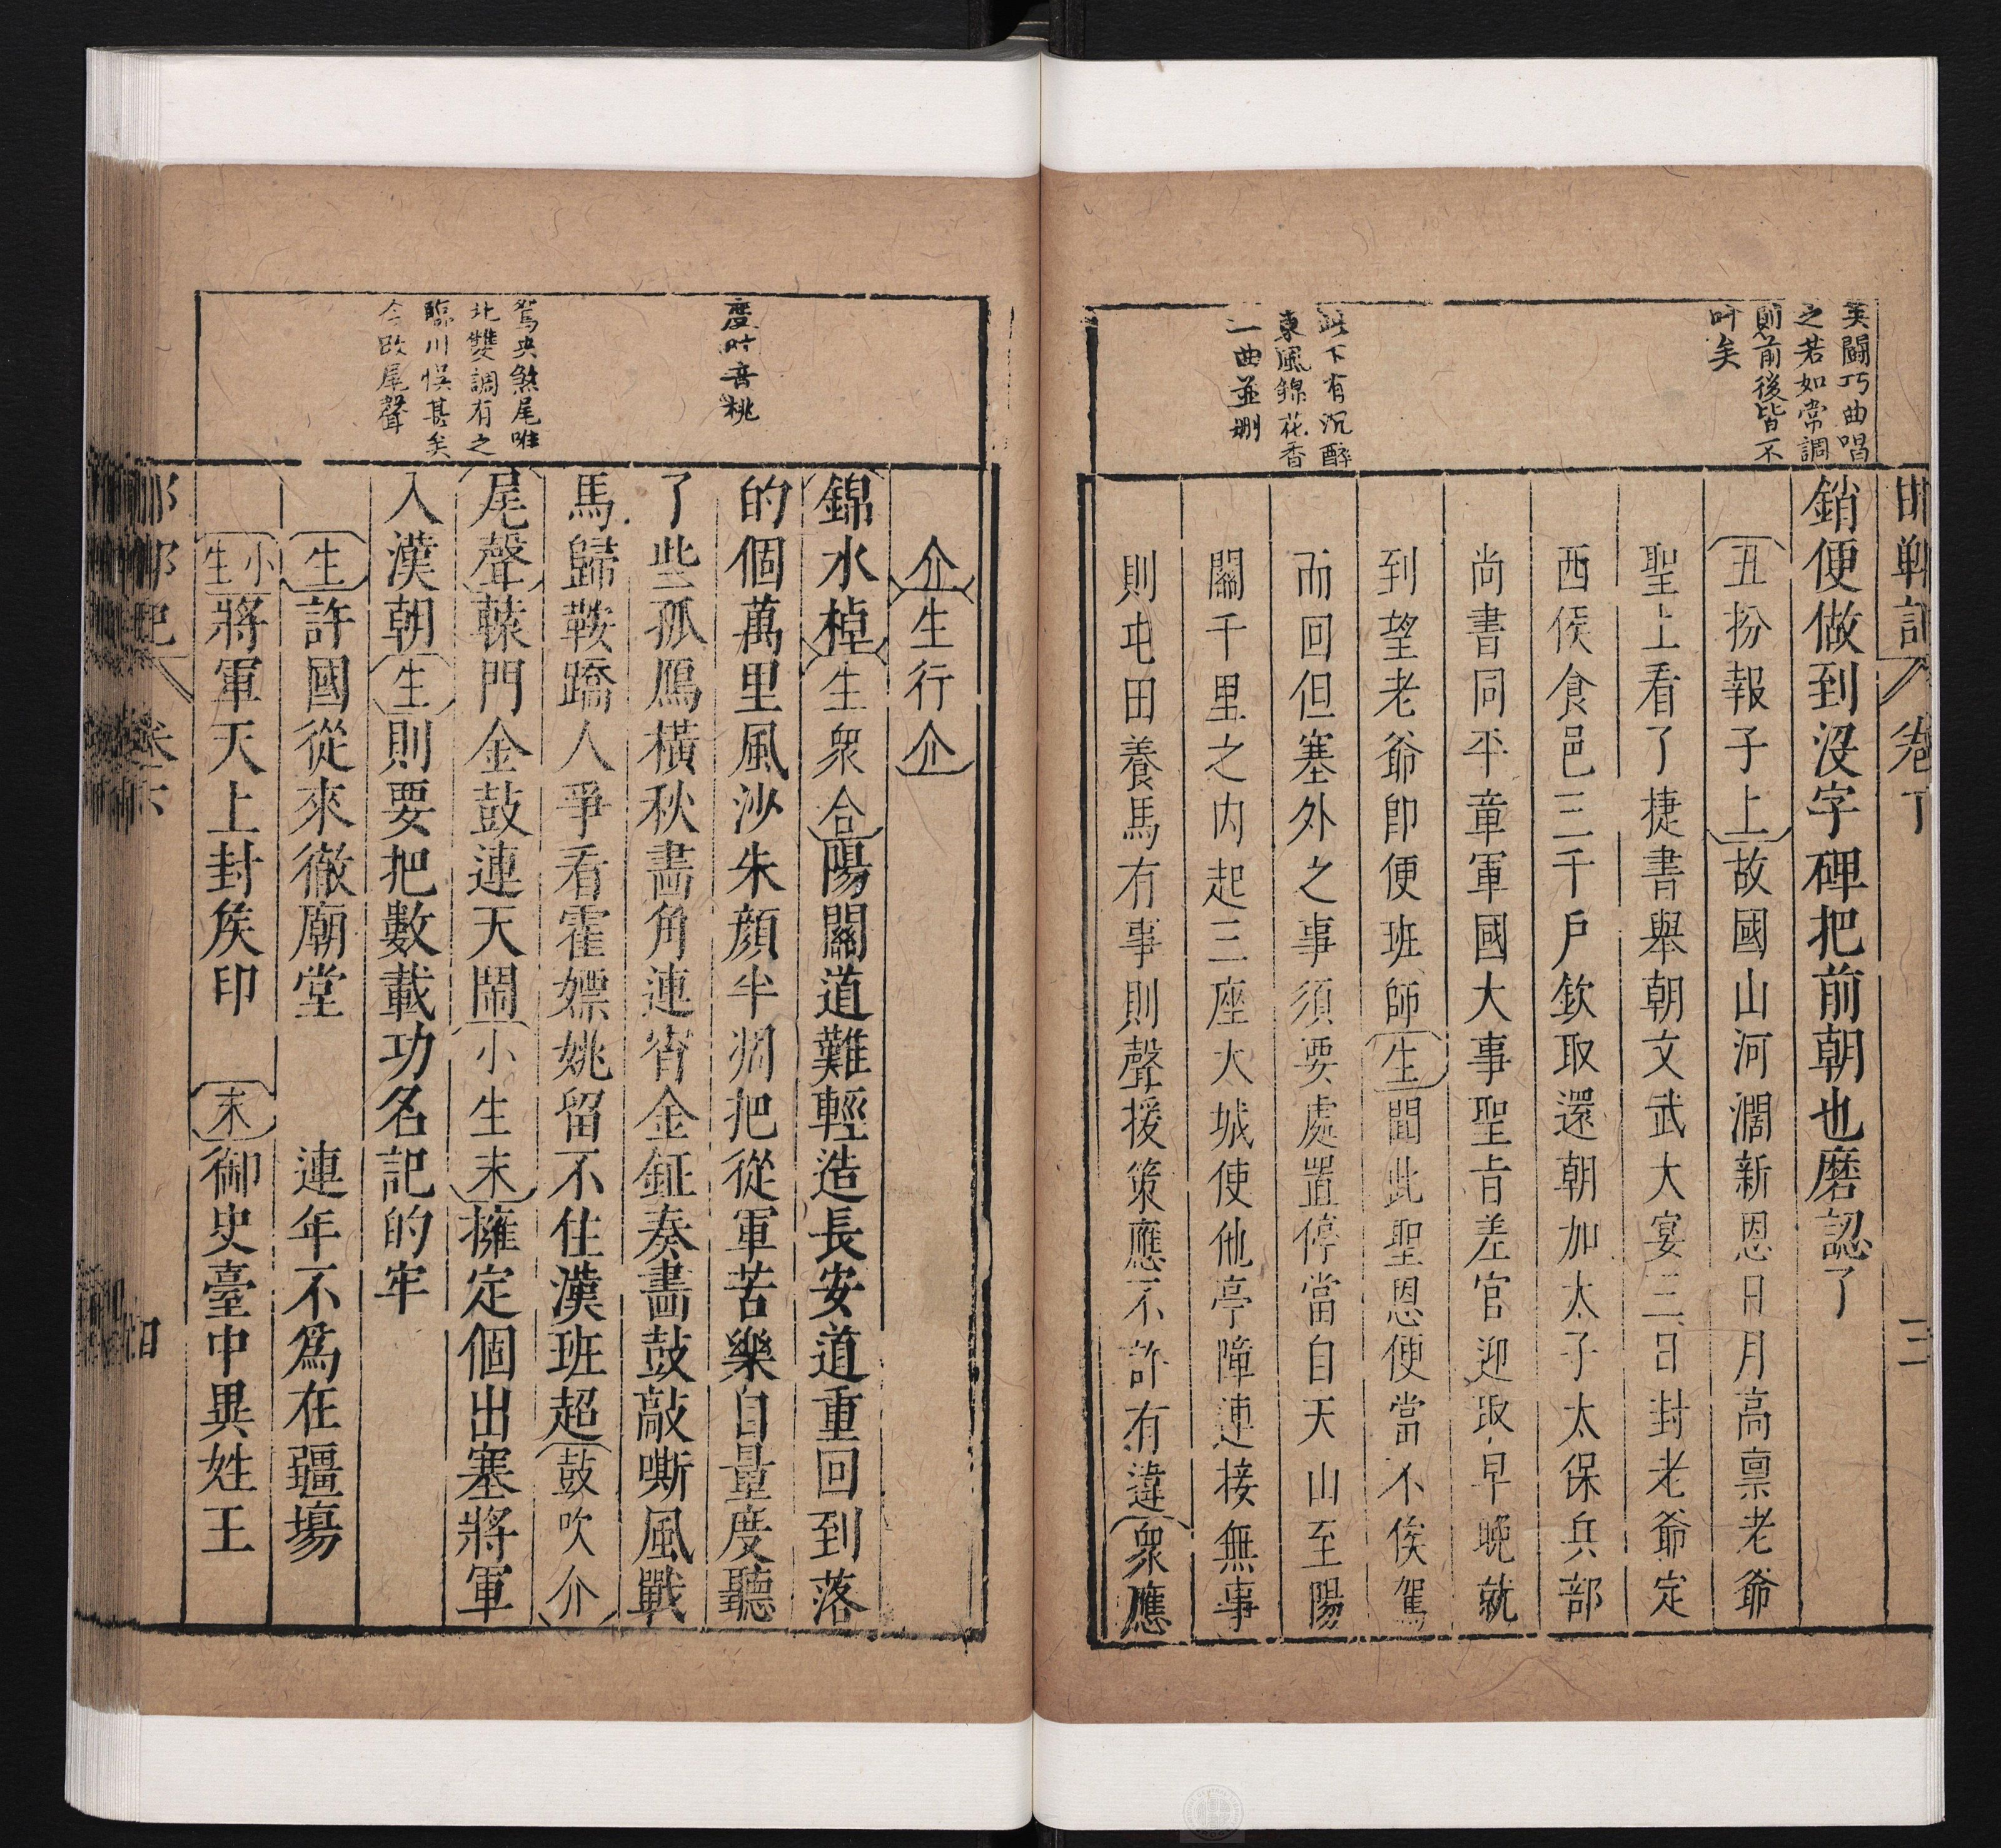 邯鄲記
卷下
三
笑鬬巧曲唱
之若如常調
則前後皆不
叶矣
此下有沉醉
東風錦花香
二曲並刪
銷便做到沒字碑把前朝也磨認了
丑扮報子上故國山河濶新恩日月高稟老爺
聖上看了捷書舉朝文武大宴三日封老爺定
西侯食邑三千戶欽取還朝加太子太保兵部
尚書同平章軍國大事聖旨差官迎取早晚就
到望老爺卽便班師生聞此聖恩便當不俟駕
而回但塞外之事須要處置停當自天山至陽
關千里之內起三座大城使他亭障連接無事
則屯田養馬有事則聲援策應不許有違衆應
度叶音桃
鴛央煞尾唯
北雙調有之
臨川悞甚矣
今改尾聲
介生行介
錦水棹生衆合陽關道難輕造長安道重回到落
的個萬里風沙朱顔半凋把從軍苦樂自量度聽
了些孤鴈橫秋畵角連宵金鉦奏畵鼓敲嘶風戰
馬歸鞍蹻人爭看霍嫖姚留不住漢班超鼓吹介
尾聲轅門金鼓連天鬧小生末擁定個出塞將軍
入漢朝生則要把數載功名記的牢
生許國從來徹廟堂　連年不爲在疆場
小生將軍天上封矦印　末御史臺中異姓王
卷下
四